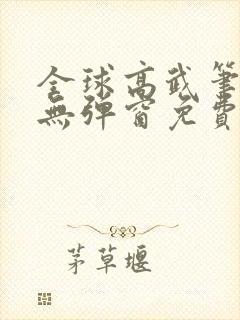 全球高武筆
無彈窗免費
茅草堰